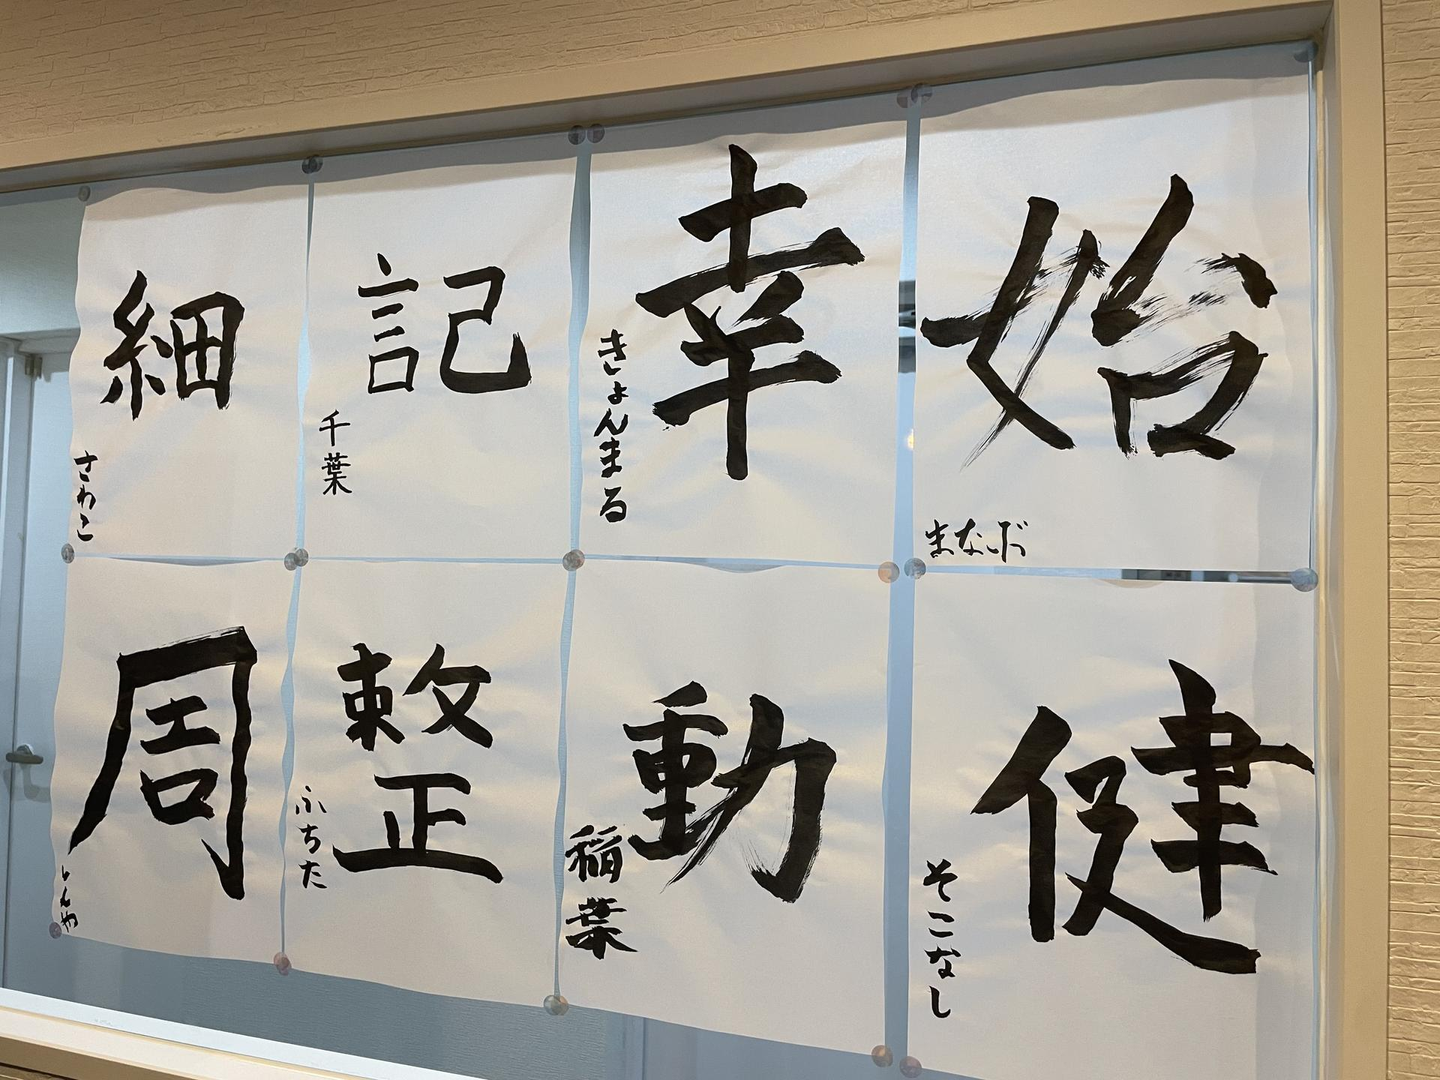 始
まなぶ
幸
きょんまる
記
千葉
細
さわこ
健
そこなし
動
稲葉
整
ふちた
周
しんや